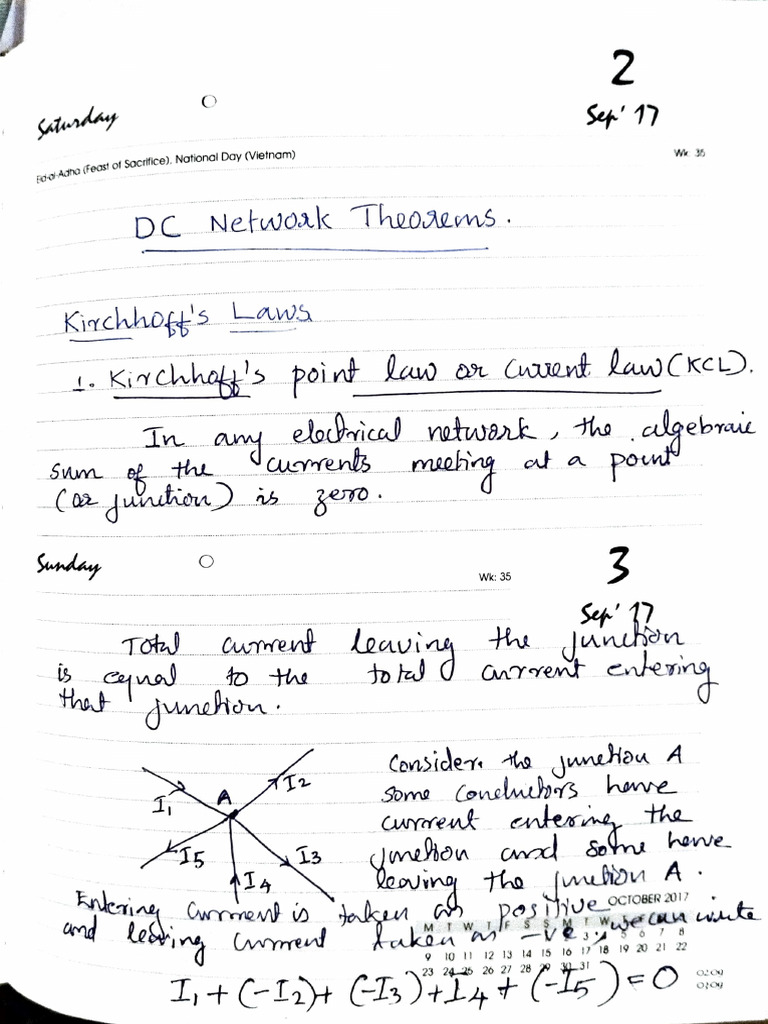 2
Saturday
Sep' 17
Eid-al-Adha (Feast of Sacrifice), National Day (Vietnam)
Wk: 35
DC Network Theorems.
Kirchhoff's Laws
1. Kirchhoff's point law or current law (KCL).
In any electrical network, the algebraic
sum of the currents meeting at a point
(or junction) is zero.
Sunday
Wk: 35
3
Sep' 17
Total current leaving the junction
is equal to the total current entering
that junction.
I1
A
I2
I5
I3
I4
Consider the junction A
some conductors have
current entering the
junction and some have
leaving the junction A.
Entering current is taken as positive
and leaving current taken as -ve, we can write
OCTOBER 2017
M T W T F S S M T W
7 8
9 10 11 12 13 14 15 16 17 18 19 20 21 22
23 24 25 26 27 28 29 30 31
I1 + (-I2) + (-I3) + I4 + (-I5) = 0